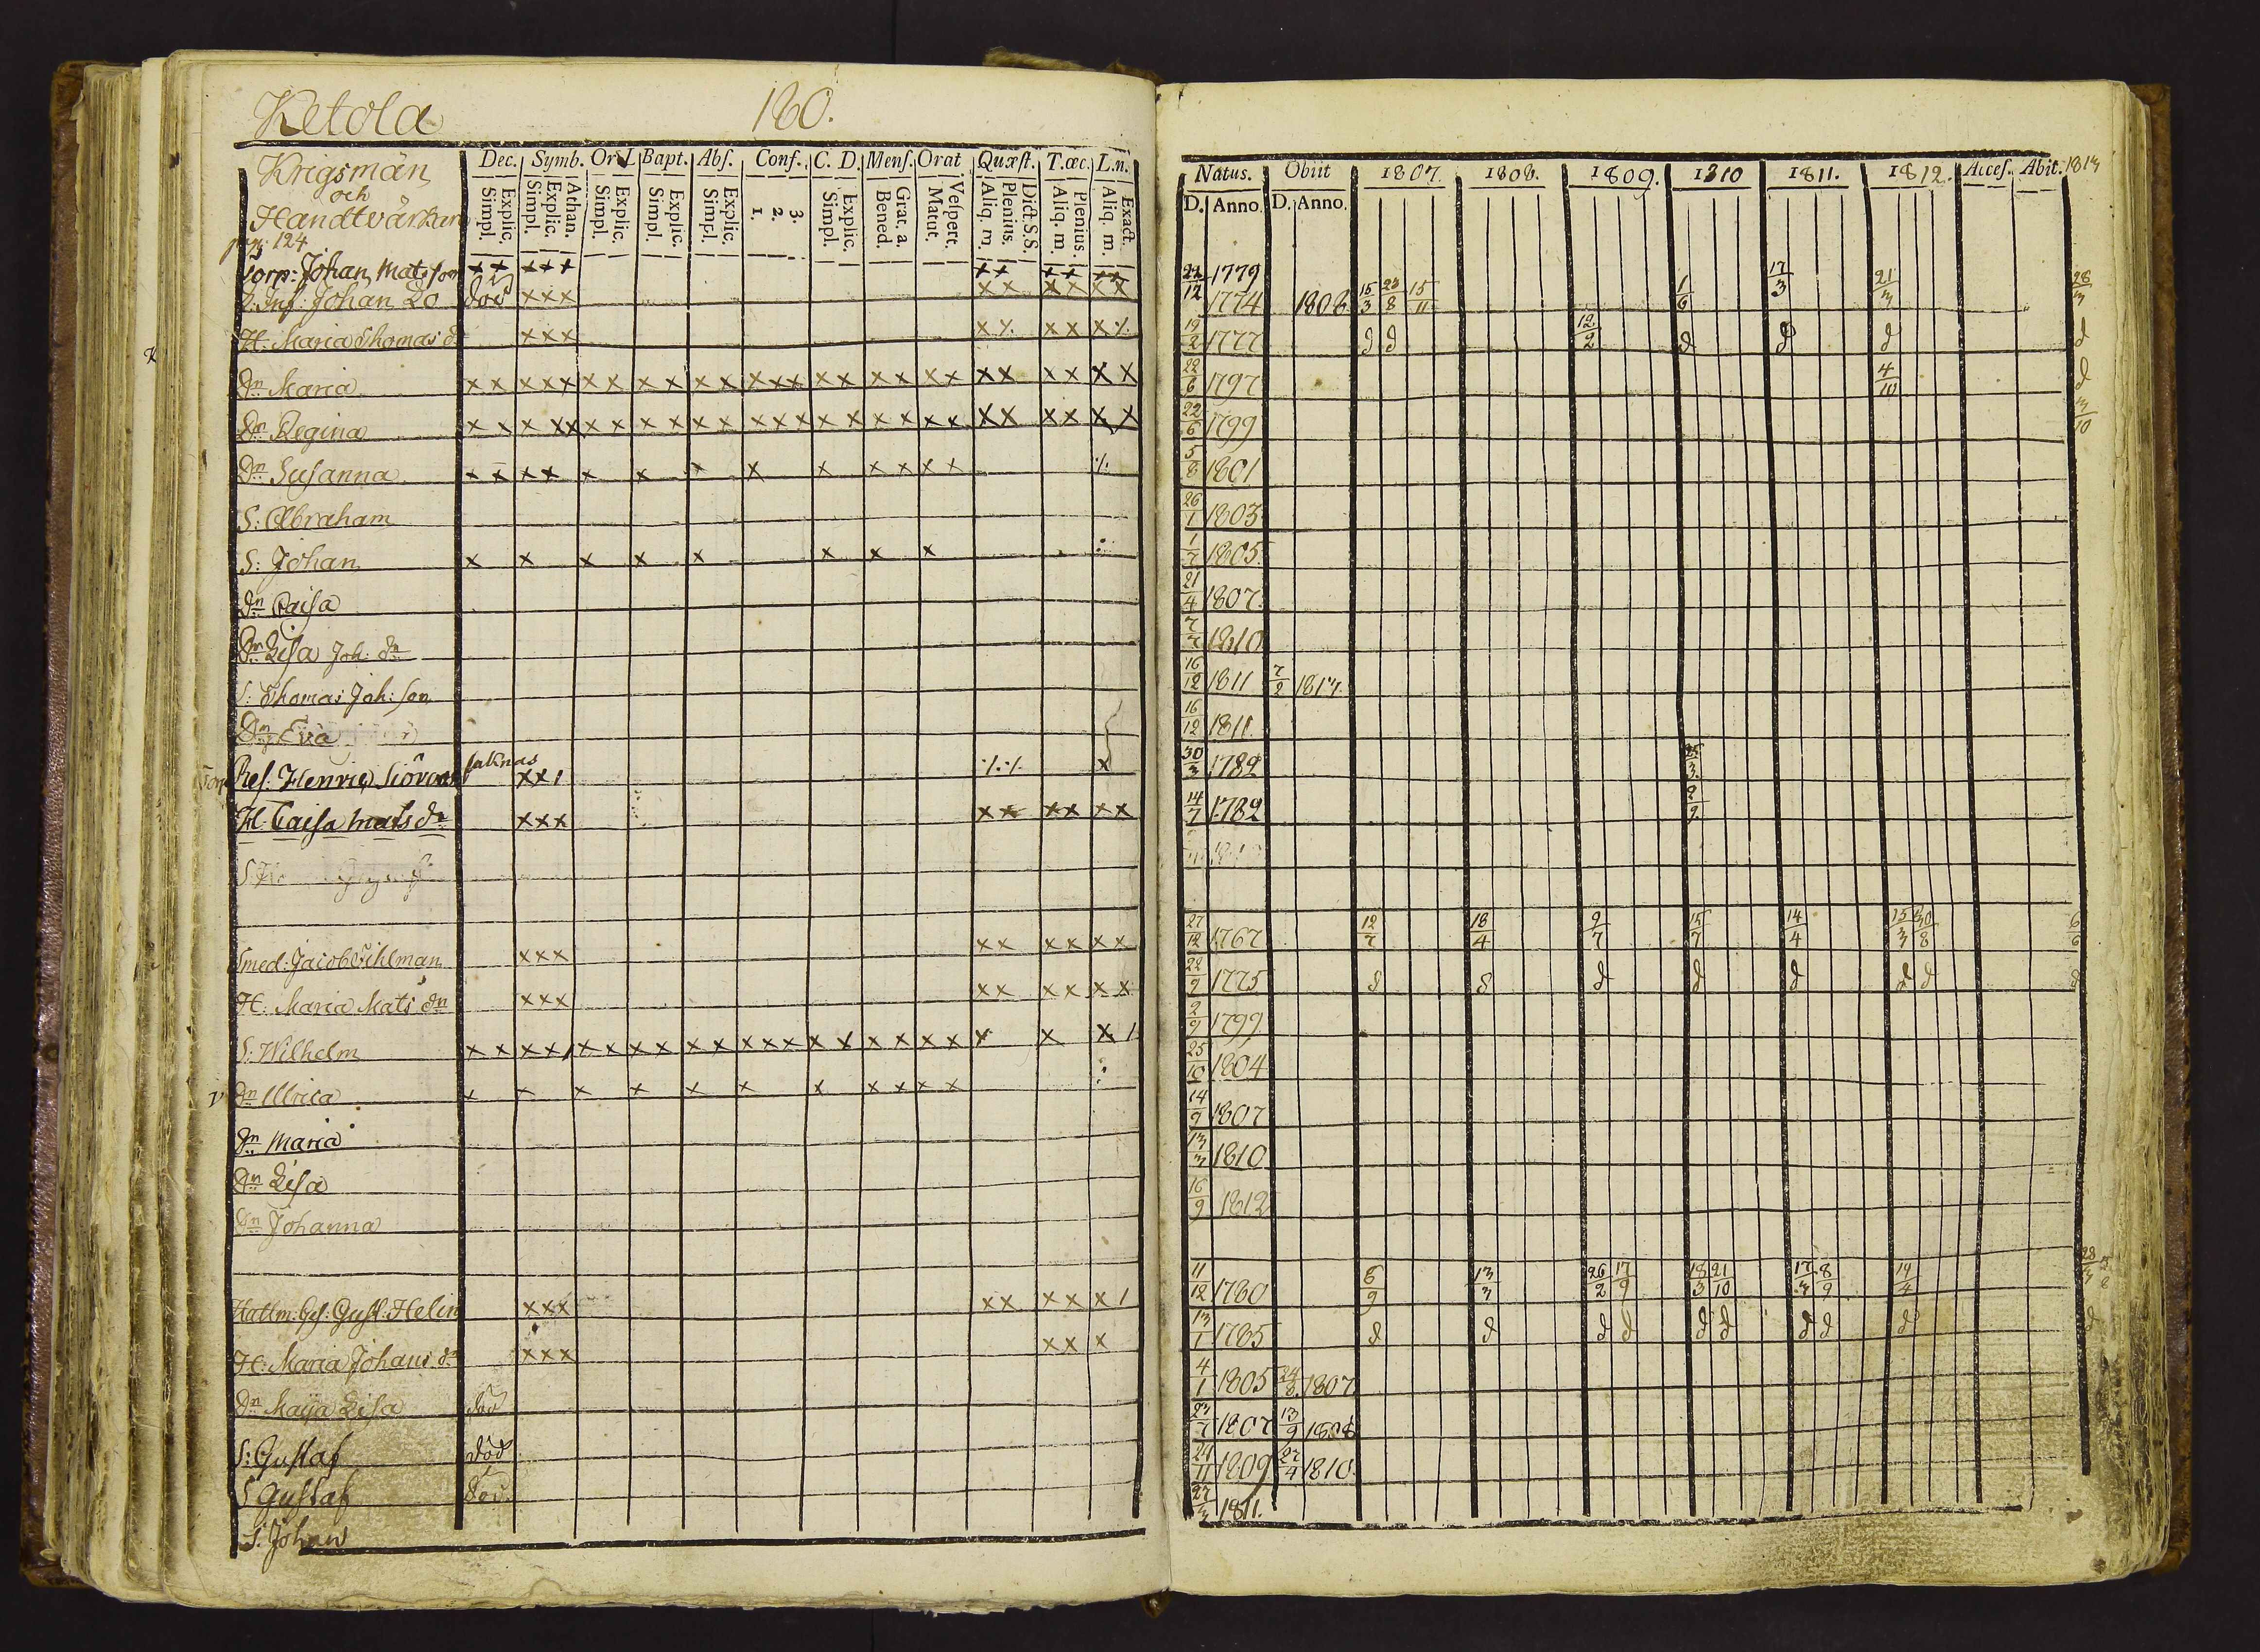 Ketola 180.
Krigsmän
och
Handtvärkare
Dec. Symb. Or L Bapt. Abs. Conf. C. D. Mens. Orat Quæst. T.œc. L.n.
Simpl. Explic. Simpl. Explic. Athan. Simpl. Explic. Simpl. Explic. Simpl. Explic. 1. 2. 3. Simpl. Explic. Bened. Grat. a. Matut. Vespert. Aliq. m. Plenius. Dict. S.S. Aliq. m Plenius. Aliq. m. Exact.
Natus. Obiit 1807. 1808. 1809. 1810 1811. 1812. Acces. Abit. 1813
D. Anno. D. Anno.
124
Corp: Johan Mats son x x x x x x x x x x x 22/12 1779 17/3
Johan Do död x x x x x x x x x 1774 1808 15/3 23/8 15/11 1/6 21/3 28/3
H. Maria Thomas dr x x x x ⁒ x x x ⁒ 19/2 1777 d d 12/2 d d d d
Dr Maria x x x x x x x x x x x x x x x x x x x x x x x x x x 22/6 1797 4/10 d
Dr Regina x x x x x x x x x x x x x x x x x x x x x x x x x x 22/6 1799 3/10
Dr Susanna x x x x x x x x x x x x x ⁒ 5/8 1801
S: Abraham 26/1 1803
S: Johan x x x x x x x x 1/7 1805
Dr Caisa 21/4 1807
Dr Lisa Joh: dr 7/7 1810
S: Thomas Joh: son 16/12 1811 7/2 1813
Dr Eva 16/12 1811.
Ref. Henric saknas x x 1 ⁒ ⁒ x 30/3 1782 25/3
H. Caisa Mats dr x x x x x x x x x 14/7 1782 2/9
Smed: Jacob Vihlman x x x x x x x x x 27/12 1767 12/7 18/4 9/7 15/7 14/4 15/3 30/8 6/6
H: Maria Mats dr x x x x x x x x x 22/9 1775 d d d d d d d d
S: Wilhelm x x x x / x x x x x x x x x x x x x x x x x x 1 2/9 1799
Dr Ulrica x x x x x x x x x x x 25/10 1804
Dr Maria 14/9 1807
Dr Lisa 13/3 1810
Dr Johanna 16/9 1812
Gust: Helin x x x x x x x x 1 11/12 1780 6/9 13/3 26/2 17/9 18/3 21/10 17/3 8/9 14/4 28/3
H: Maria Johans dr x x x x x x 13/1 1785 d d d d d d d d d d
Dr Maija Lisa död 4/1 1805 24/8 1807
S: Gustaf död 23/7 1807 13/9 1808
S Gustaf död. 24/11 1809 27/4 1810.
S. Johan 27/3 1811.